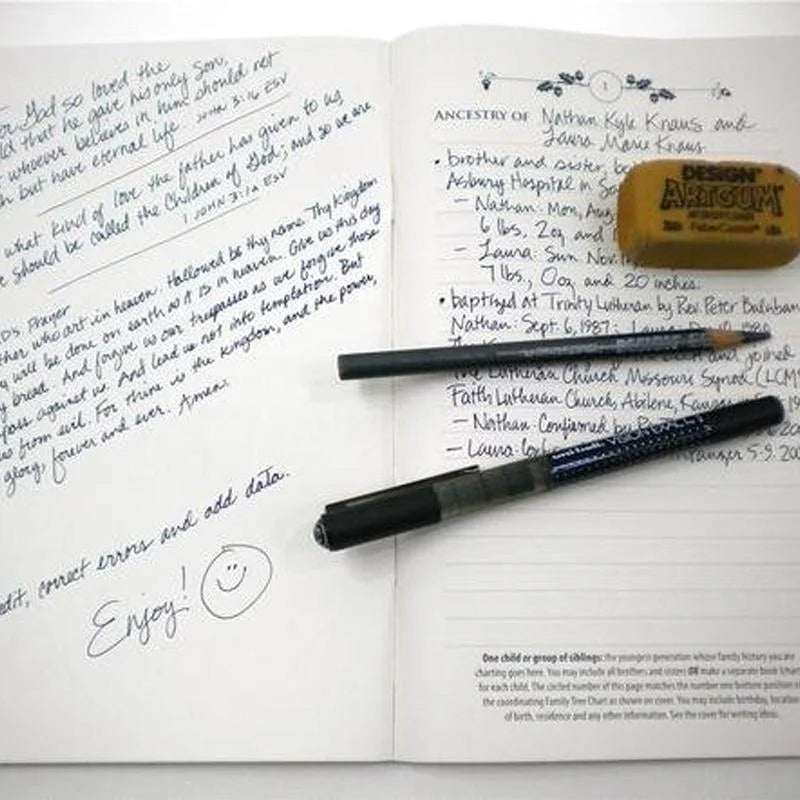 God so loved the
that he gave his only Son,
whoever believes in him should not
but have eternal life. JOHN 3:16 ESV
what kind of love the father has given to us,
should be called the Children of God; and so we are
1 JOHN 3:1A ESV
Prayer
who art in heaven. Hallowed be thy name. Thy Kingdom
will be done on earth as it is in heaven. Give us this day
bread. And forgive us our trespasses as we forgive those
against us. And lead us not into temptation. But
us from evil. For thine is the kingdom, and the power,
glory, forever and ever. Amen.
edit, correct errors and add data.
Enjoy!
1
ANCESTRY OF Nathan Kyle Knaus and
Laura Marie Knaus
• brother and sister,
Asbury Hospital in
– Nathan: Mon, Aug
6 lbs, 2oz and
– Laura: Sun Nov
7 lbs, 0oz and 20 inches.
• baptized at Trinity Lutheran by Rev. Peter
Nathan: Sept. 6, 1987;
and joined
The Lutheran Church Missouri Synod
Faith Lutheran Church, Abilene,
– Nathan: Confirmed by
– Laura: 5-9.
DESIGN
ARTGUM
One child or group of siblings: the youngest generation whose family history you are
charting goes here. You may include all brothers and sisters OR make a separate book
for each child. The circled number of this page matches the number one bottom position
the coordinating Family Tree Chart as shown on cover. You may include birthday, location
of birth, residence and any other information. See the cover for writing ideas.